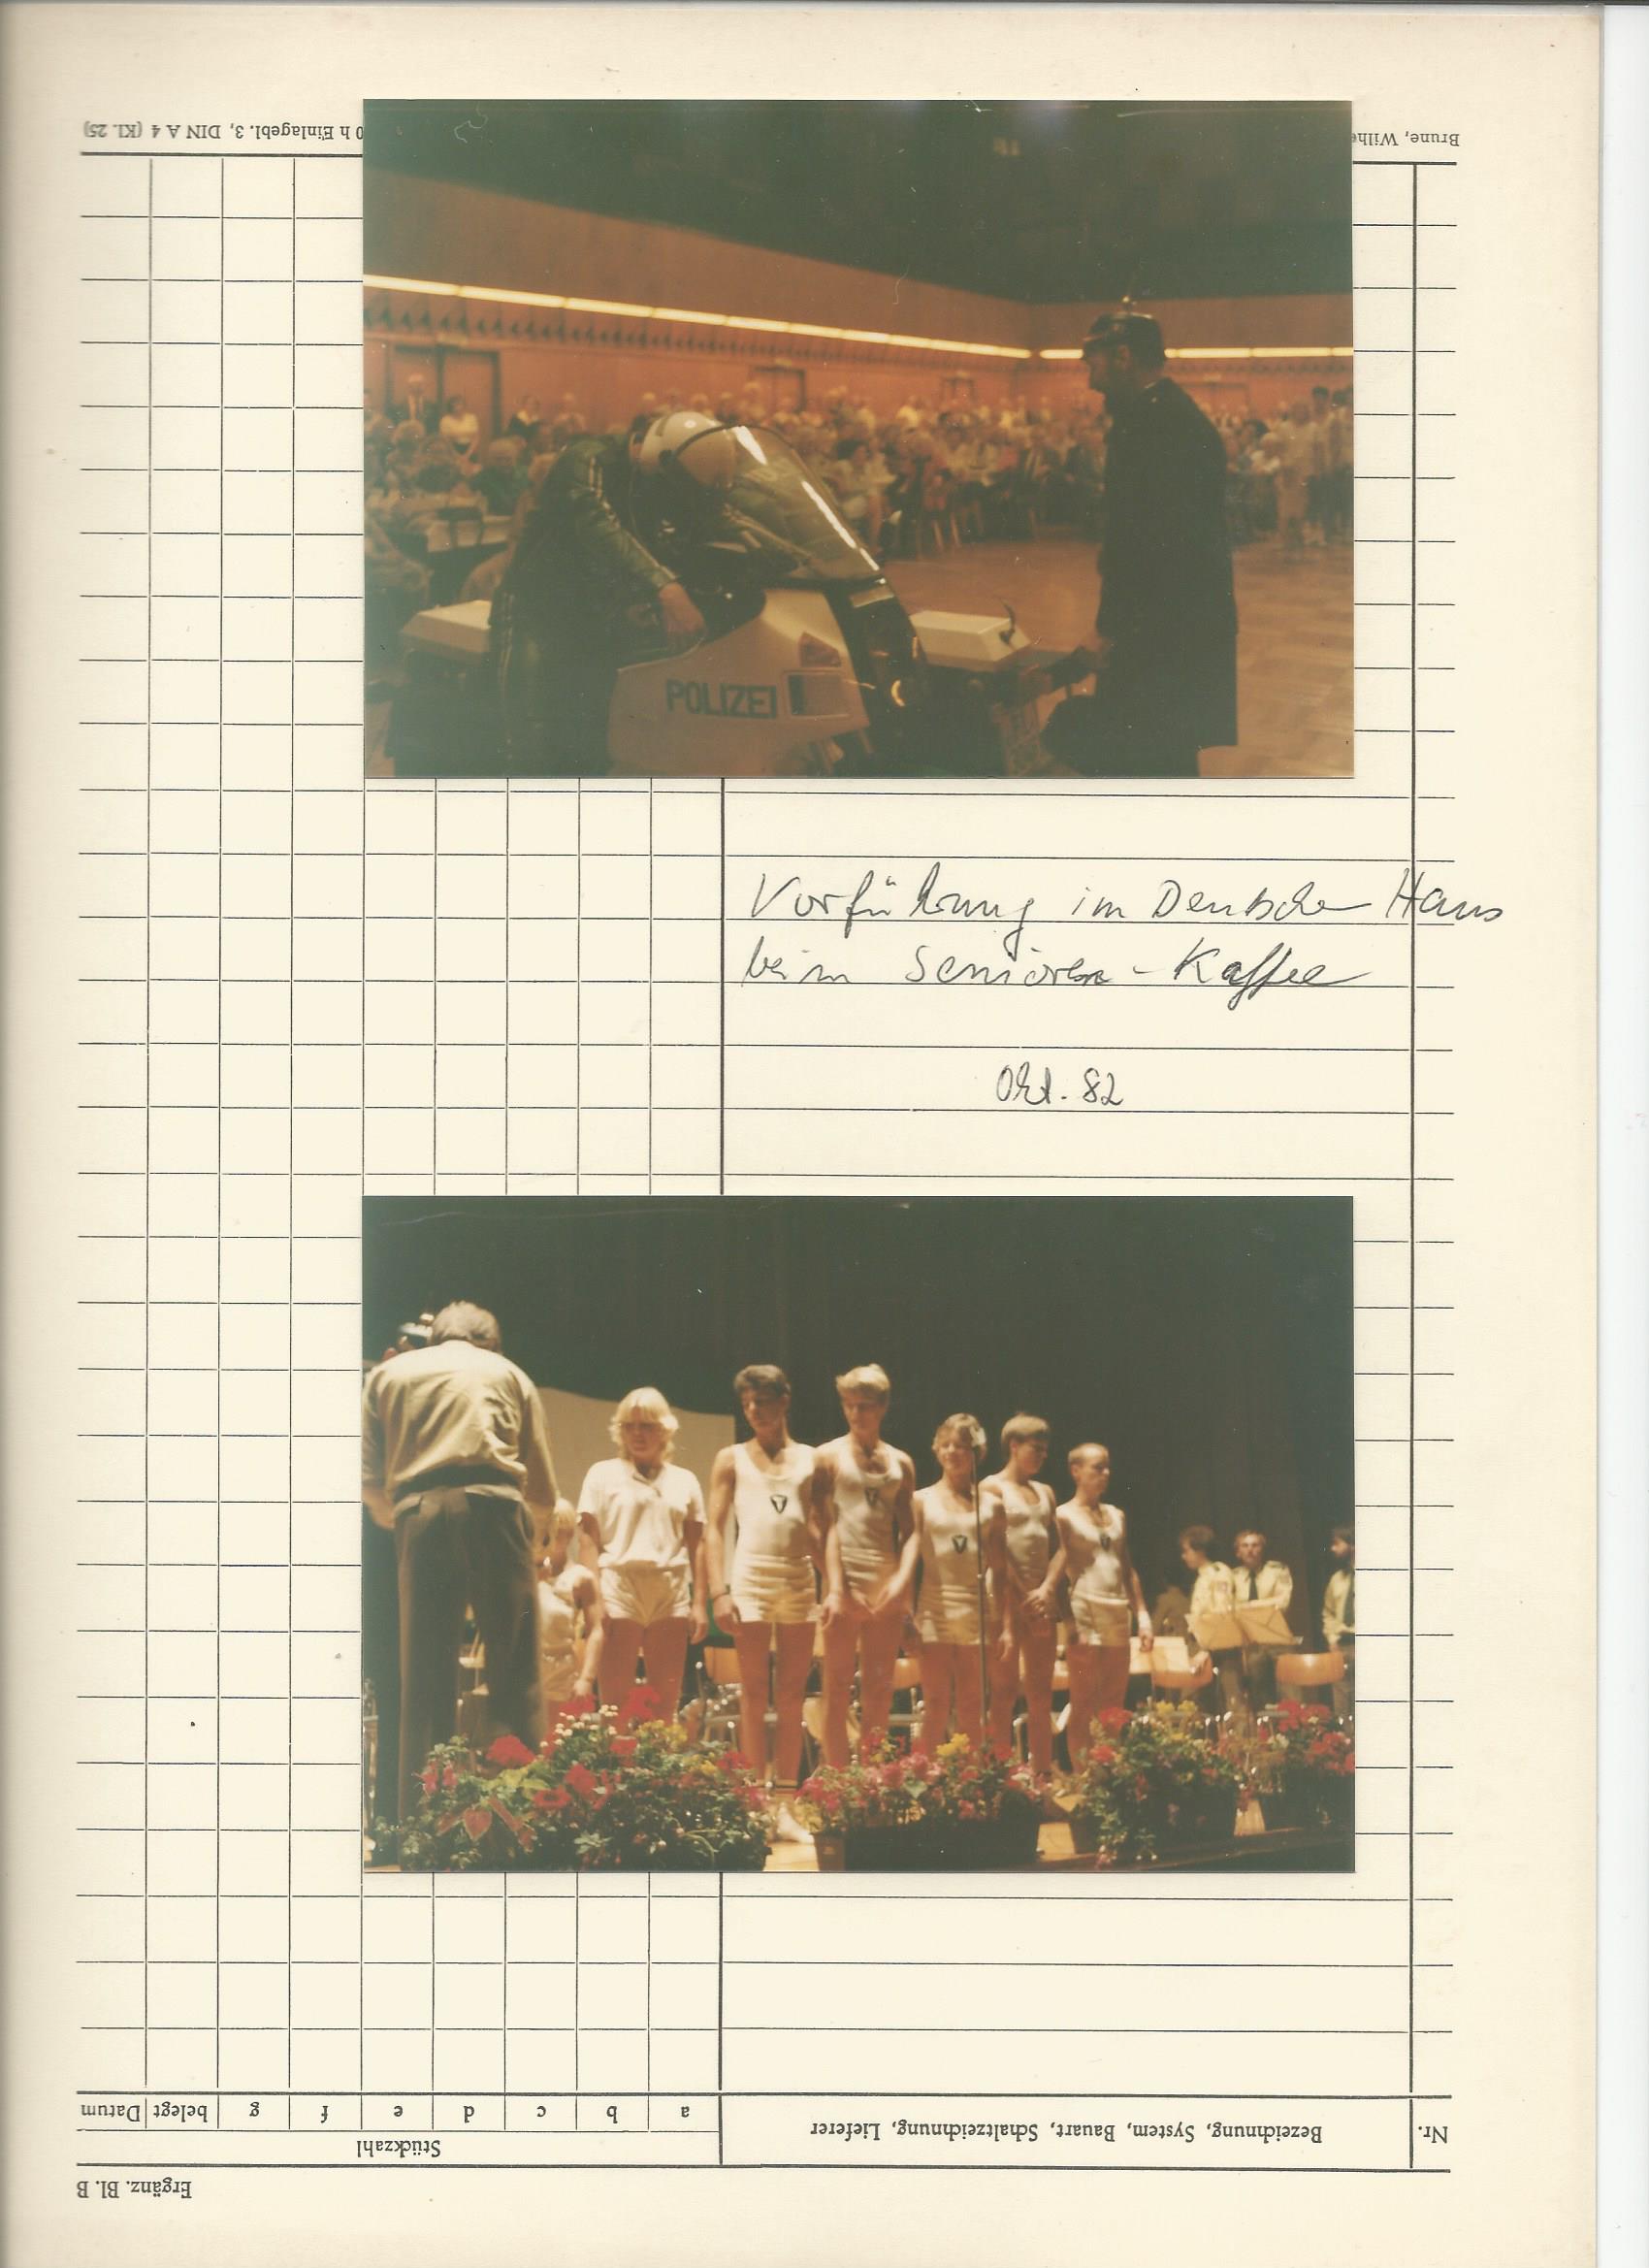 Brune, Wilhe
0 h Einlagebl. 3, DIN A 4 (Kl. 25)
POLIZEI
Vorführung im Deutschen Haus
beim Senioren-Kaffee
Okt. 82
Ergänz. Bl. B
Nr.
Bezeichnung, System, Bauart, Schaltzeichnung, Lieferer
Stückzahl
a b c d e f g belegt Datum